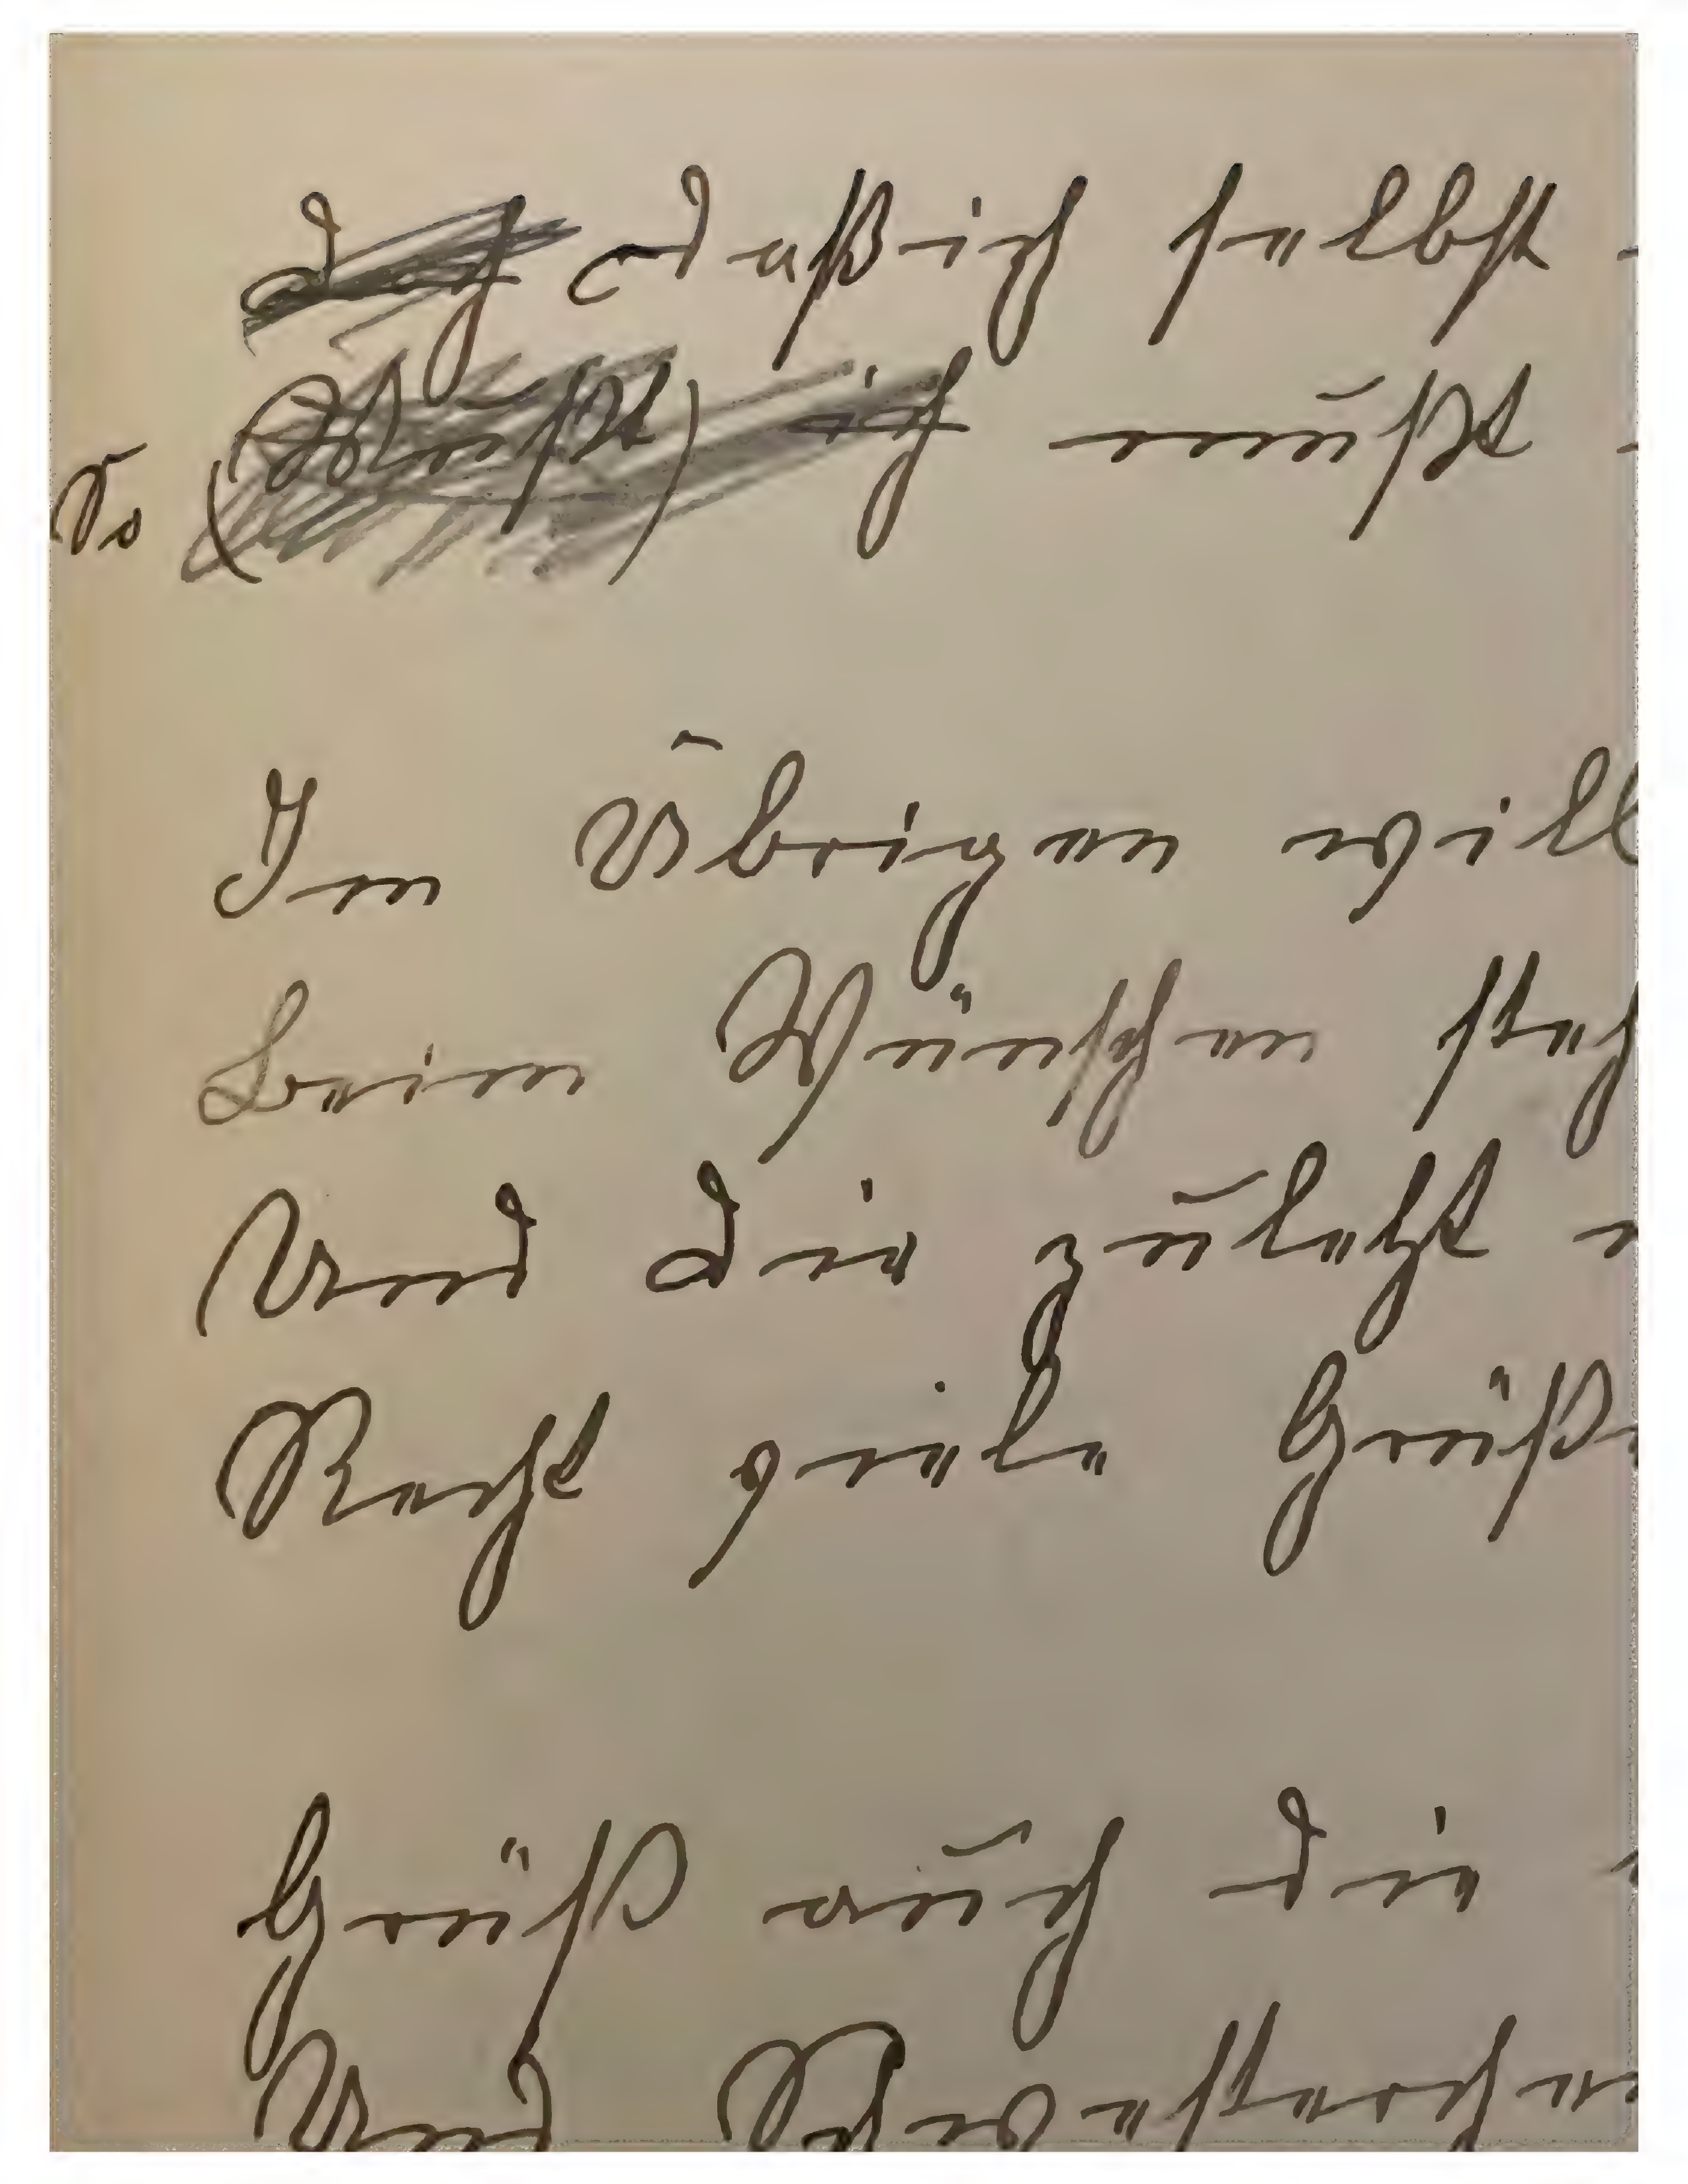 daß ich selbst
So ich mußt
Im Übrigen will
beim Wünschen steh
Und die zuletzt
Recht viele Grüße
Grüß auch die
Und Schwesterchen